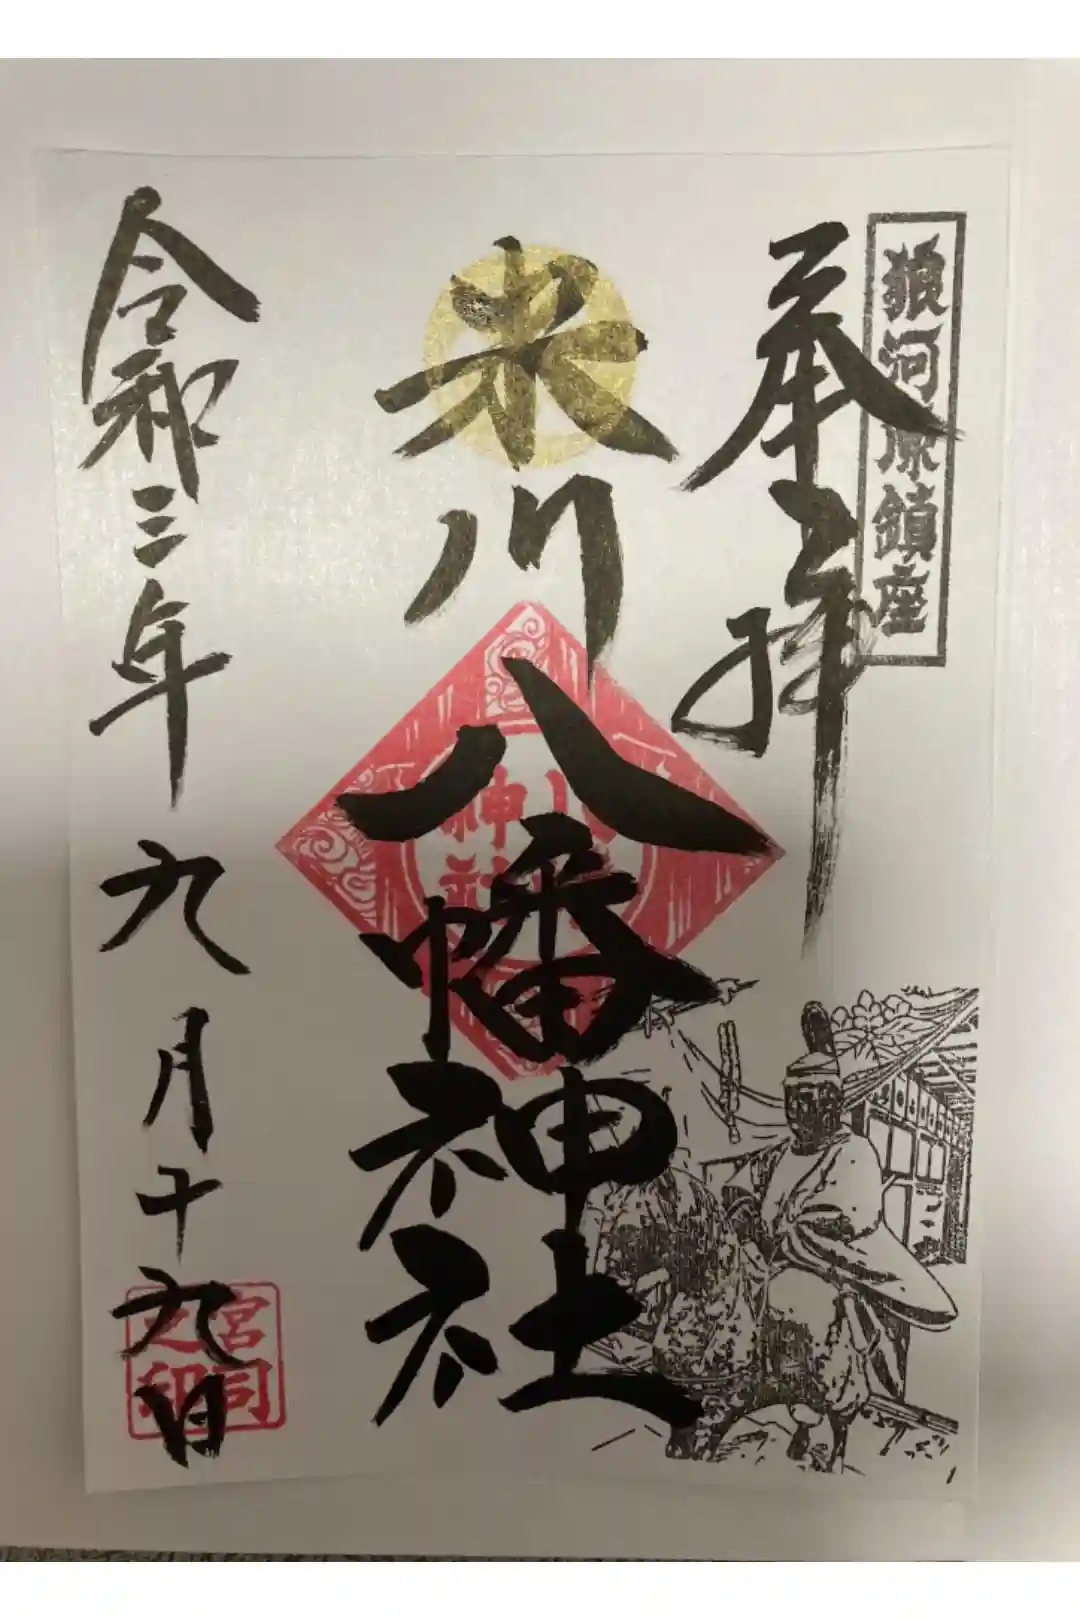 狼河原鎮座
奉拝
米川八幡神社
令和三年九月十九日
神社
宮司之印